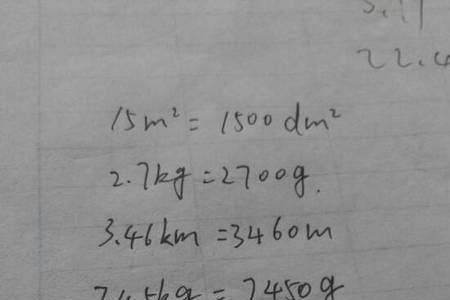 22.4
15m² = 1500 dm²
2.7kg = 2700g.
3.46km = 3460m
= 7450g